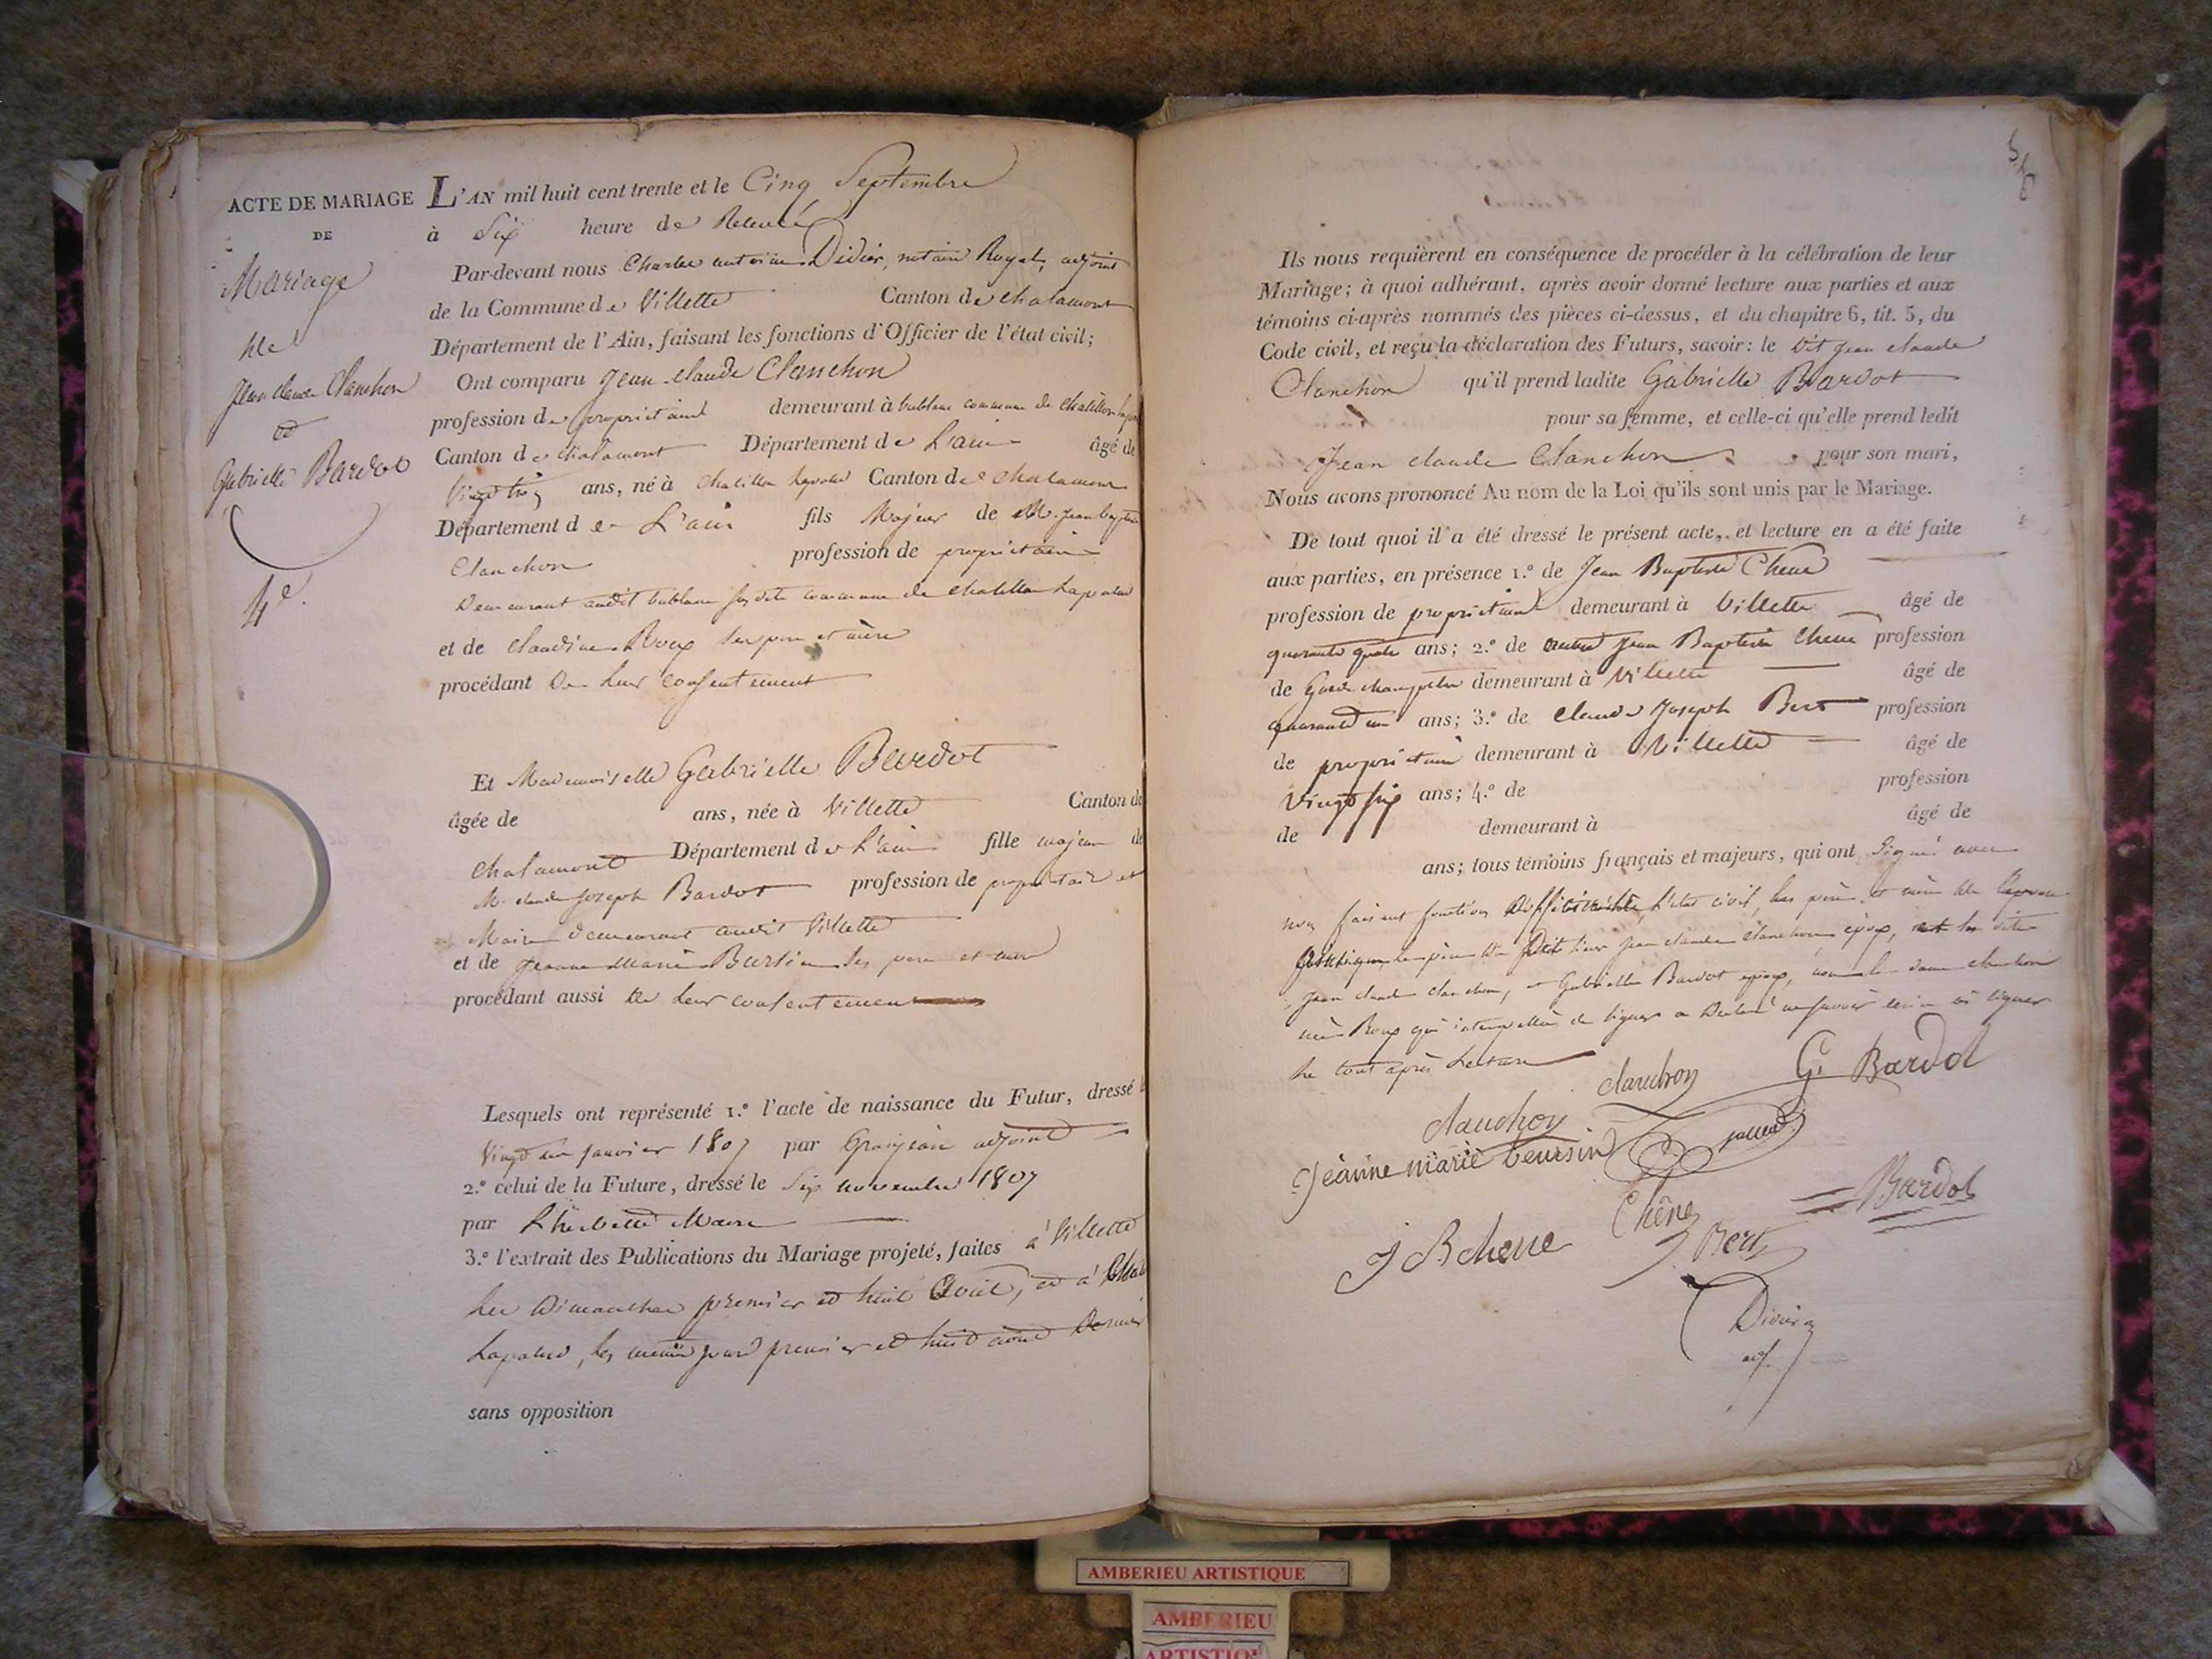 ACTE DE MARIAGE
DE
Mariage
de
Jean claude Clanchon
et
Gabrielle Bardot
4e.
L'AN mil huit cent trente et le Cinq Septembre
à Six heure de Relevée
Par-devant nous Charles antoine Didier, notaire Royal, adjoint
de la Commune de Villette Canton de chalamont
Département de l'Ain, faisant les fonctions d'Officier de l'état civil;
Ont comparu Jean-claude Clanchon
profession de propriétaire demeurant à bublane commune de chatillon
Canton de chalamont Département de L'ain âgé de
Vingt trois ans, né à chatillon lapalud Canton de chalamont
Département de L'ain fils Majeur de M. Jean baptiste
Clanchon profession de propriétaire
Demeurant audit bublane susdite commune de chatillon Lapalud
et de claudine Roux ses pere et mère
procédant De leur consentement
Et Mademoiselle Gabrielle Bardot
âgée de ans, née à Villette Canton de
chalamont Département de L'ain fille majeure de
M. claude Joseph Bardot profession de propriétaire et
Maire demeurant audit Villette
et de Jeanne Marie Bursin ses pere et mere
procédant aussi de leur consentement
Lesquels ont représenté 1.° l'acte de naissance du Futur, dressé
Vingt un janvier 1807 par Grosjean adjoint
2.° celui de la Future, dressé le Six novembre 1807
par Maire
3.° l'extrait des Publications du Mariage projeté, faites à Villette
les dimanches premier et huit Août, et à
Lapalud, les mêmes jours premier et huit août Dernier
sans opposition
Ils nous requièrent en conséquence de procéder à la célébration de leur
Mariage; à quoi adhérant, après avoir donné lecture aux parties et aux
témoins ci-après nommés des pièces ci-dessus, et du chapitre 6, tit. 5, du
Code civil, et reçu la déclaration des Futurs, savoir: le dit Jean claude
Clanchon qu'il prend ladite Gabrielle Bardot
pour sa femme, et celle-ci qu'elle prend ledit
Jean claude Clanchon pour son mari,
Nous avons prononcé Au nom de la Loi qu'ils sont unis par le Mariage.
De tout quoi il a été dressé le présent acte, et lecture en a été faite
aux parties, en présence 1.° de Jean Baptiste Chene
profession de propriétaire demeurant à Villette âgé de
quarante quatre ans; 2.° de autre Jean Baptiste Chene profession
de Garde champetre demeurant à Villette âgé de
quarante un ans; 3.° de Claude Joseph Bert profession
de propriétaire demeurant à Villette âgé de
Vingt six ans; 4.° de profession
de demeurant à âgé de
ans; tous témoins français et majeurs, qui ont Signé avec
nous faisant fonctions l'état civil, les père et mère de
le père du jean claude clanchon époux, les dits
Jean claude clanchon, et Gabrielle Bardot époux, non la dame clanchon
née Roux qui interpellée de signer a Déclaré ne savoir écrire ni signer
le tout après Lecture
clanchon
G. Bardot
clanchon
Jeanne marie beursin
Bardot
Chêne
J B chene
J. Bert
Didier
adj.
AMBERIEU ARTISTIQUE
AMBERIEU
ARTISTIQUE